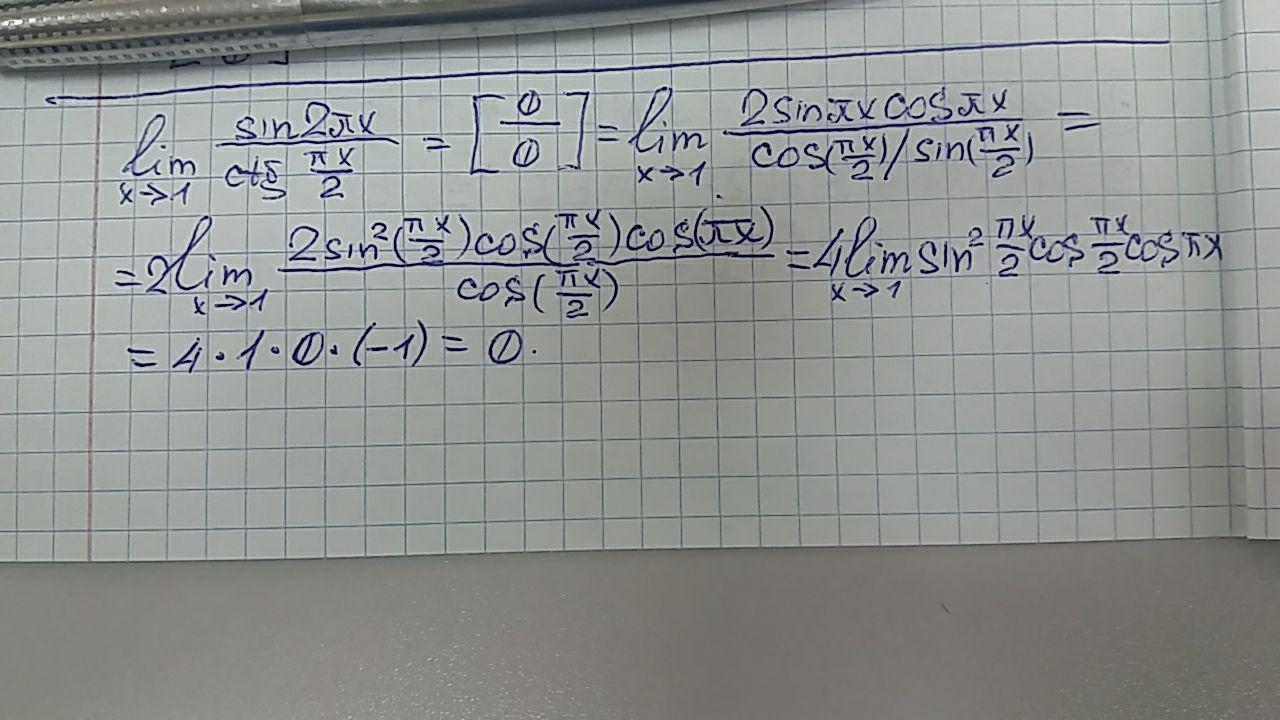 lim x→1 sin2πx / ctg πx/2 = [0/0] = lim x→1 2sinπx cosπx / cos(πx/2)/sin(πx/2) =
= 2lim x→1 2sin²(πx/2)cos(πx/2)cos(πx) / cos(πx/2) = 4lim x→1 sin² πx/2 cos πx/2 cos πx
= 4·1·0·(-1) = 0.